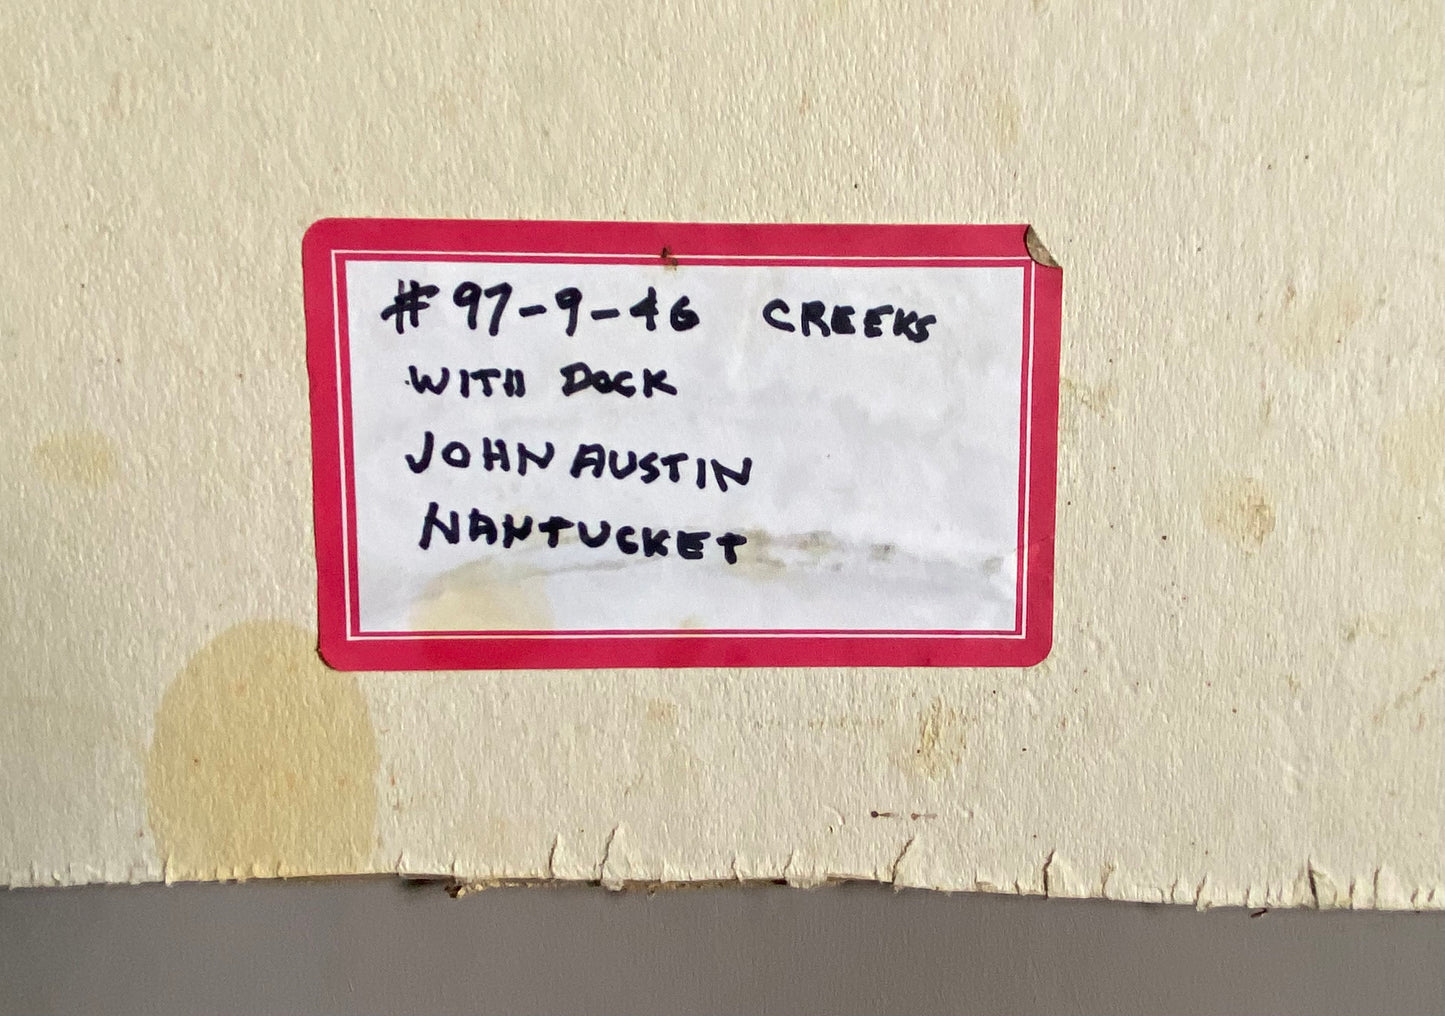 # 97-9-46 CREEKS
WITH DOCK
JOHN AUSTIN
NANTUCKET